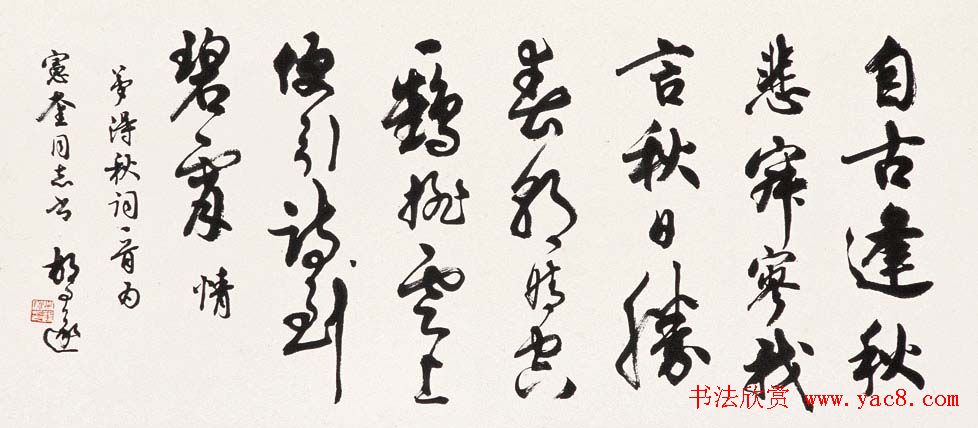 自古逢秋
悲寂寥我
言秋日勝
春朝晴空
一鶴排雲上
便引诗到
碧霄情
夢得秋词一首为
憲奎同志书
胡问遂
书法欣赏 www.yac8.com